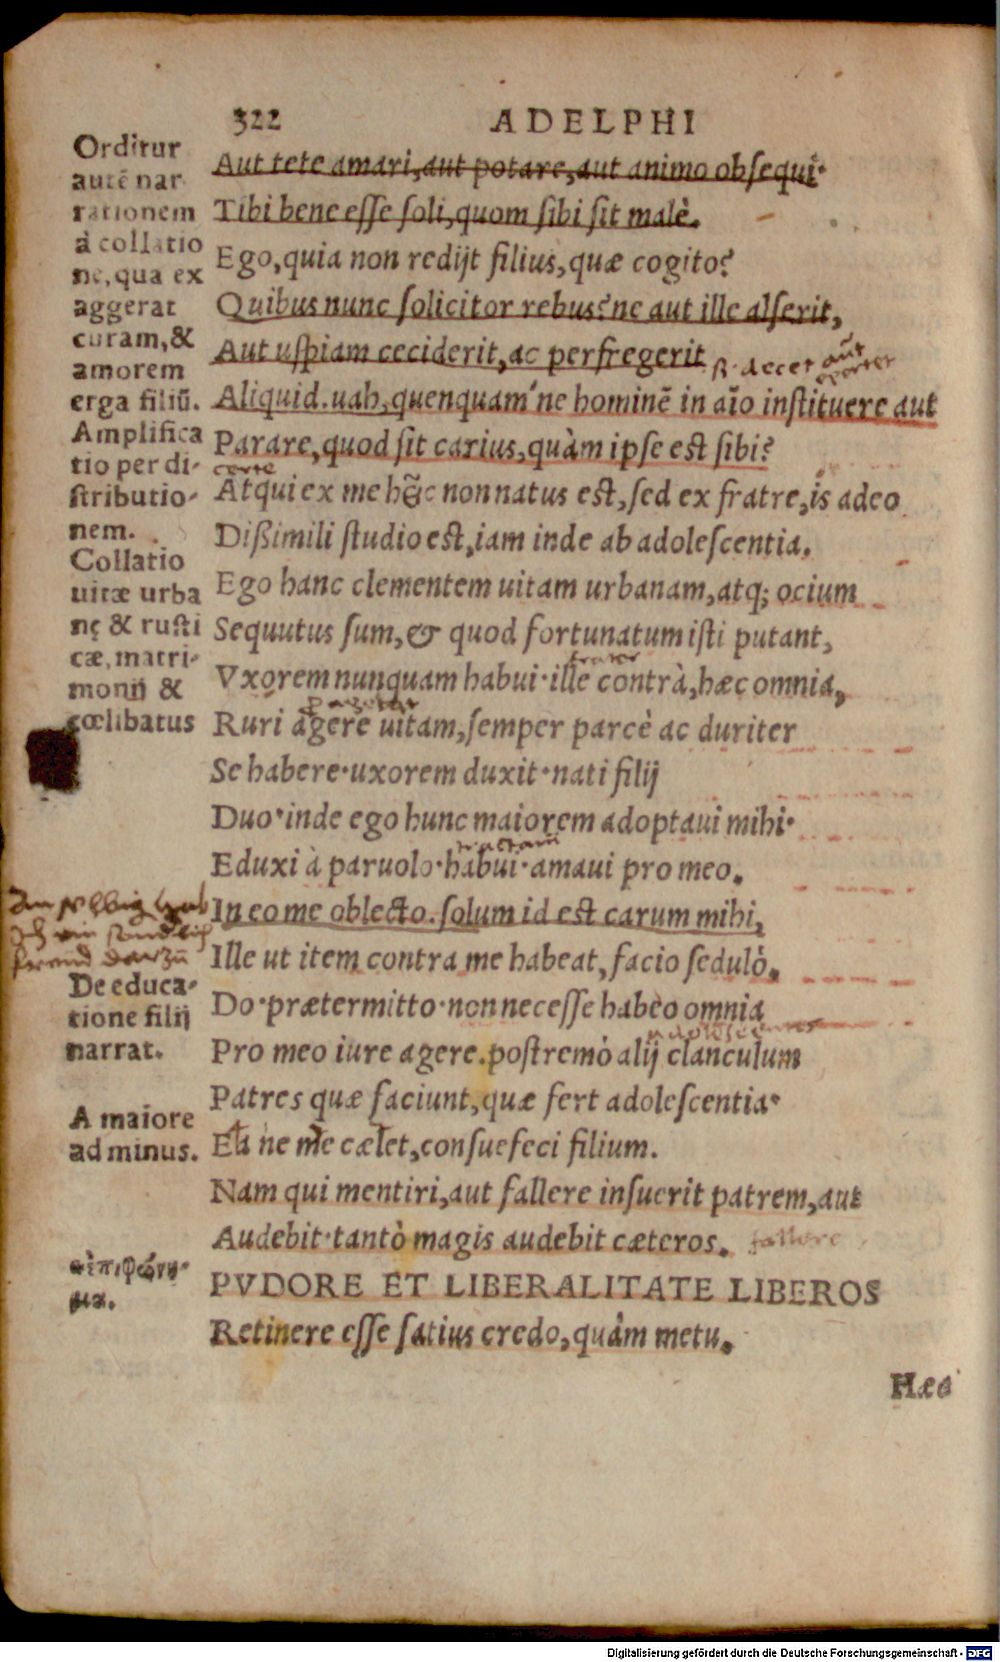 322 ADELPHI
Orditur
autē nar
rationem
à collatio
ne, qua ex
aggerat
curam, &
amorem
erga filiū.
Amplifica
tio per di-
stributio-
nem.
Collatio
uitæ urba
nę & rusti
cæ, matri-
monij &
cœlibatus
De educa-
tione filij
narrat.
A maiore
ad minus.
ἐπιφώνη-
μα.
Aut tete amari, aut potare, aut animo obsequi·
Tibi bene esse soli, quom sibi sit malè.
Ego, quia non redijt filius, quæ cogito?
Quibus nunc solicitor rebus? ne aut ille alserit,
Aut uspiam ceciderit, ac perfregerit
Aliquid. uah, quenquam'ne hominē in aīo instituere aut
Parare, quod sit carius, quàm ipse est sibi?
certe
Atqui ex me hic non natus est, sed ex fratre, is adeo
Dißimili studio est, iam inde ab adolescentia.
Ego hanc clementem uitam urbanam, atq; ocium
Sequutus sum, & quod fortunatum isti putant,
frater
Vxorem nunquam habui· ille contrà, hæc omnia,
Ruri agere uitam, semper parcè ac duriter
Se habere· uxorem duxit· nati filij
Duo· inde ego hunc maiorem adoptaui mihi·
Eduxi à paruolo· habui· amaui pro meo.
In eo me oblecto. solum id est carum mihi,
Ille ut item contra me habeat, facio sedulò.
Do· prætermitto· non necesse habeo omnia
adolescentes
Pro meo iure agere. postremò alij clanculum
Patres quæ faciunt, quæ fert adolescentia·
Ea ne me cælet, consuefeci filium.
Nam qui mentiri, aut fallere insuerit patrem, aut
Audebit· tantò magis audebit cæteros. fallere
PVDORE ET LIBERALITATE LIBEROS
Retinere esse satius credo, quàm metu.
Hæc
Digitalisierung gefördert durch die Deutsche Forschungsgemeinschaft - DFG